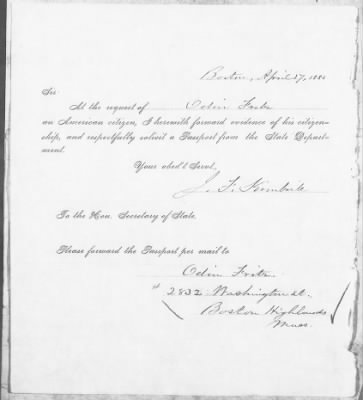 Boston, April 27, 188
Sir
At the request of Odin Fritz
an American citizen, I herewith forward evidence of his citizen-
ship, and respectfully solicit a Passport from the State Depart-
ment.
Your obed't Servt,
J. F. Kimball
To the Hon. Secretary of State.
Please forward the Passport per mail to
Odin Fritz
2832 Washington St.
Boston Highlands
Mass.